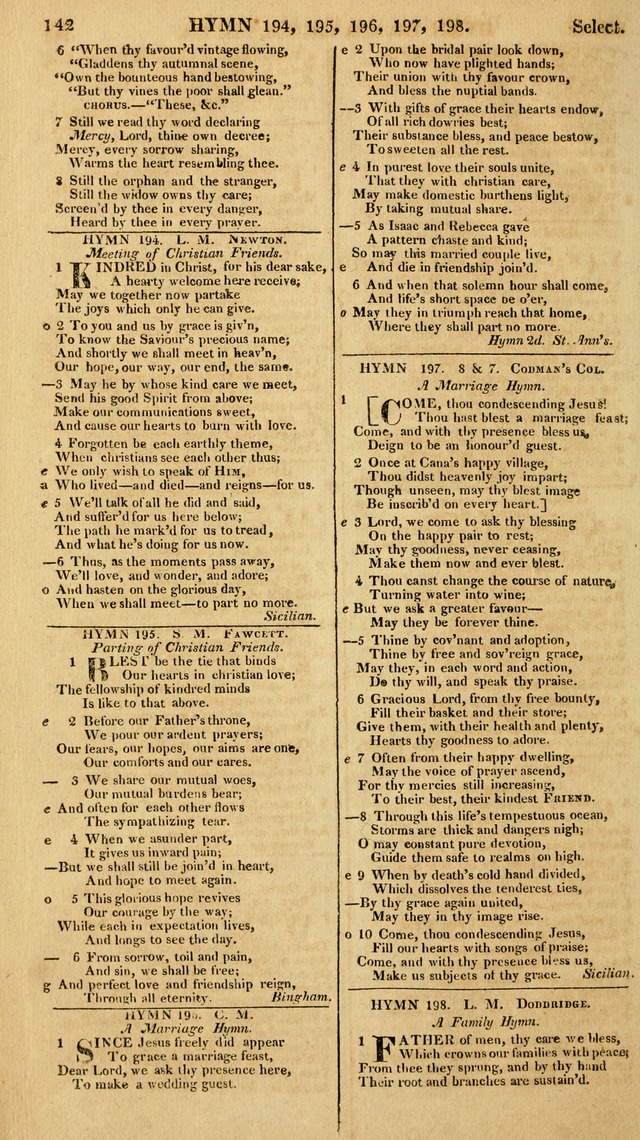 142 HYMN 194, 195, 196, 197, 198. Select.
6 “When thy favour'd vintage flowing,
“Gladdens thy autumnal scene,
“Own the bounteous hand bestowing,
“But thy vines the poor shall glean.”
CHORUS.—“These, &c.”
7 Still we read thy word declaring
Mercy, Lord, thine own decree;
Mercy, every sorrow sharing,
Warms the heart resembling thee.
8 Still the orphan and the stranger,
Still the widow owns thy care;
Screen'd by thee in every danger,
Heard by thee in every prayer.
HYMN 194. L. M. NEWTON.
Meeting of Christian Friends.
1 KINDRED in Christ, for his dear sake,
A hearty welcome here receive;
May we together now partake
The joys which only he can give.
o 2 To you and us by grace is giv'n,
To know the Saviour's precious name;
And shortly we shall meet in heav'n,
Our hope, our way, our end, the same.
—3 May he by whose kind care we meet,
Send his good Spirit from above;
Make our communications sweet,
And cause our hearts to burn with love.
4 Forgotten be each earthly theme,
When christians see each other thus;
e We only wish to speak of HIM,
a Who lived—and died—and reigns—for us.
e 5 We'll talk of all he did and said,
And suffer'd for us here below;
The path he mark'd for us to tread,
And what he's doing for us now.
—6 Thus, as the moments pass away,
We'll love, and wonder, and adore;
o And hasten on the glorious day,
When we shall meet—to part no more.
Sicilian.
HYMN 195. S. M. FAWCETT.
Parting of Christian Friends.
1 BLEST be the tie that binds
Our hearts in christian love;
The fellowship of kindred minds
Is like to that above.
e 2 Before our Father's throne,
We pour our ardent prayers;
Our fears, our hopes, our aims are one,
Our comforts and our cares.
— 3 We share our mutual woes,
Our mutual burdens bear;
e And often for each other flows
The sympathizing tear.
e 4 When we asunder part,
It gives us inward pain;
—But we shall still be join'd in heart,
And hope to meet again.
o 5 This glorious hope revives
Our courage by the way;
While each in expectation lives,
And longs to see the day.
— 6 From sorrow, toil and pain,
And sin, we shall be free;
g And perfect love and friendship reign,
Through all eternity. Bingham.
HYMN 196. C. M.
A Marriage Hymn.
1 SINCE Jesus freely did appear
To grace a marriage feast,
Dear Lord, we ask thy presence here,
To make a wedding guest.
e 2 Upon the bridal pair look down,
Who now have plighted hands;
Their union with thy favour crown,
And bless the nuptial bands.
—3 With gifts of grace their hearts endow,
Of all rich dowries best;
Their substance bless, and peace bestow,
To sweeten all the rest.
e 4 In purest love their souls unite,
That they with christian care,
May make domestic burthens light,
By taking mutual share.
—5 As Isaac and Rebecca gave
A pattern chaste and kind;
So may this married couple live,
e And die in friendship join'd.
6 And when that solemn hour shall come,
And life's short space be o'er,
o May they in triumph reach that home,
Where they shall part no more.
Hymn 2d. St. Ann's.
HYMN 197. 8 & 7. CODMAN'S COL.
A Marriage Hymn.
1 [COME, thou condescending Jesus!
Thou hast blest a marriage feast;
Come, and with thy presence bless us,
Deign to be an honour'd guest.
2 Once at Cana's happy village,
Thou didst heavenly joy impart;
Though unseen, may thy blest image
Be inscrib'd on every heart.]
e 3 Lord, we come to ask thy blessing
On the happy pair to rest;
May thy goodness, never ceasing,
Make them now and ever blest.
4 Thou canst change the course of nature,
Turning water into wine;
e But we ask a greater favour—
May they be forever thine.
—5 Thine by cov'nant and adoption,
Thine by free and sov'reign grace,
May they, in each word and action,
Do thy will, and speak thy praise.
6 Gracious Lord, from thy free bounty,
Fill their basket and their store;
Give them, with their health and plenty,
Hearts thy goodness to adore.
e 7 Often from their happy dwelling,
May the voice of prayer ascend,
For thy mercies still increasing,
To their best, their kindest FRIEND.
—8 Through this life's tempestuous ocean,
Storms are thick and dangers nigh;
O may constant pure devotion,
Guide them safe to realms on high.
e 9 When by death's cold hand divided,
Which dissolves the tenderest ties,
—By thy grace again united,
May they in thy image rise.
o 10 Come, thou condescending Jesus,
Fill our hearts with songs of praise;
Come, and with thy presence bless us,
Make us subjects of thy grace. Sicilian.
HYMN 198. L. M. DODDRIDGE.
A Family Hymn.
1 FATHER of men, thy care we bless,
Which crowns our families with peace;
From thee they sprung, and by thy hand
Their root and branches are sustain'd.